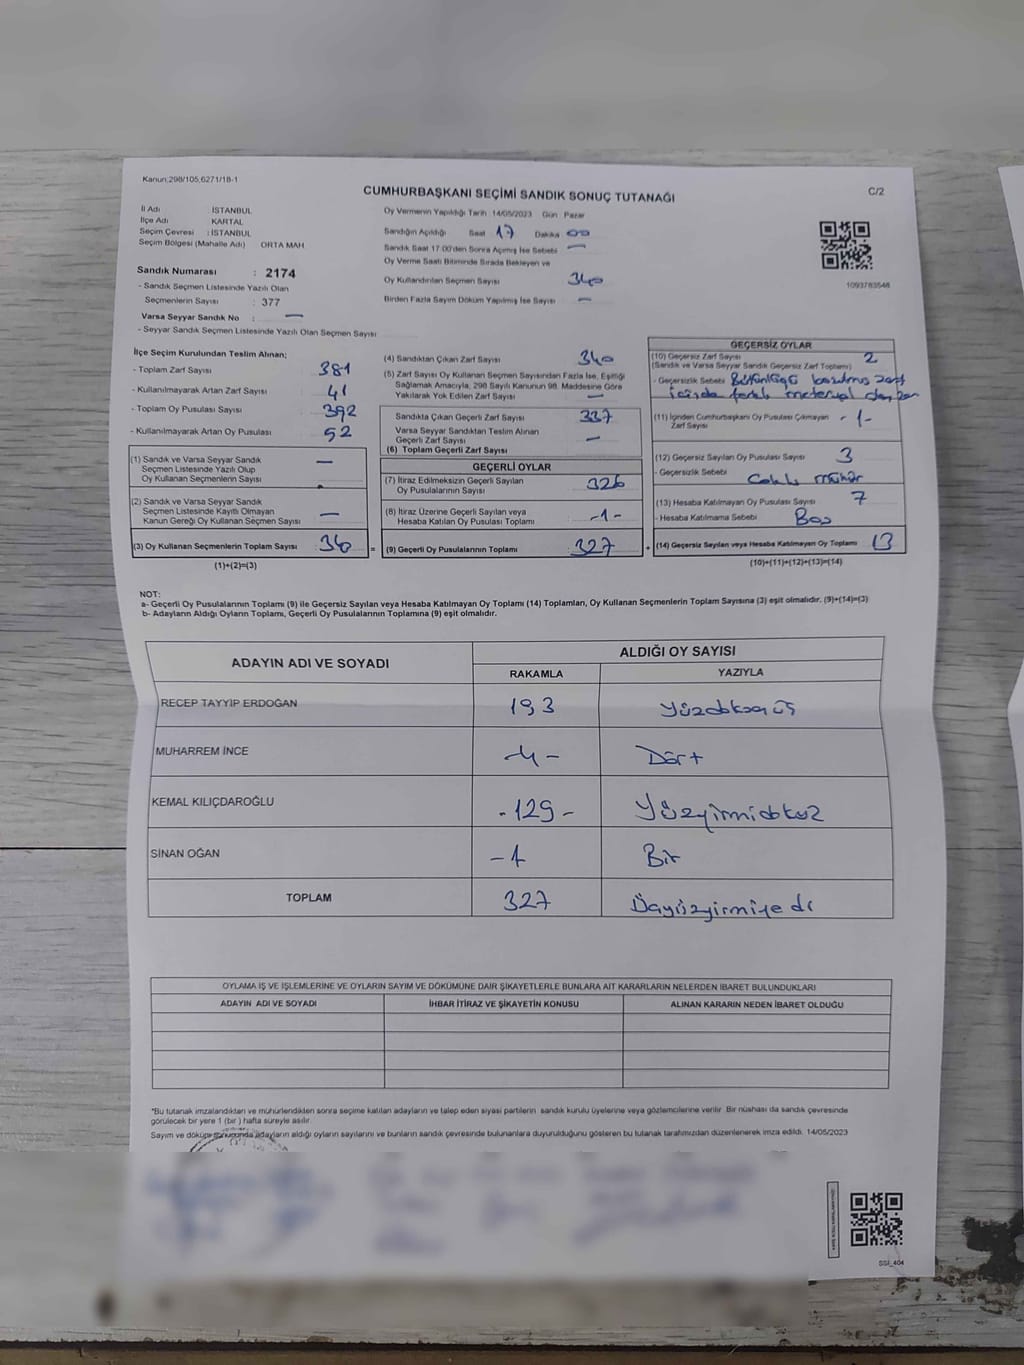 Kanun:298/105,6271/18-1
C/2
CUMHURBAŞKANI SEÇİMİ SANDIK SONUÇ TUTANAĞI
İl Adı İSTANBUL
İlçe Adı KARTAL
Seçim Çevresi : İSTANBUL
Seçim Bölgesi (Mahalle Adı) ORTA MAH
Sandık Numarası : 2174
- Sandık Seçmen Listesinde Yazılı Olan
Seçmenlerin Sayısı : 377
Varsa Seyyar Sandık No : —
- Seyyar Sandık Seçmen Listesinde Yazılı Olan Seçmen Sayısı
Oy Vermenin Yapıldığı Tarih :14/05/2023 Gün : Pazar
Sandığın Açıldığı Saat 17 Dakika 00
Sandık Saat 17:00'den Sonra Açılmış İse Sebebi —
Oy Verme Saati Bitiminde Sırada Bekleyen ve
Oy Kullandırılan Seçmen Sayısı 340
Birden Fazla Sayım Döküm Yapılmış İse Sayısı —
1093783548
İlçe Seçim Kurulundan Teslim Alınan;
- Toplam Zarf Sayısı 381
- Kullanılmayarak Artan Zarf Sayısı 41
- Toplam Oy Pusulası Sayısı 392
- Kullanılmayarak Artan Oy Pusulası 52
(1) Sandık ve Varsa Seyyar Sandık
Seçmen Listesinde Yazılı Olup
Oy Kullanan Seçmenlerin Sayısı —
(2) Sandık ve Varsa Seyyar Sandık
Seçmen Listesinde Kayıtlı Olmayan
Kanun Gereği Oy Kullanan Seçmen Sayısı —
(3) Oy Kullanan Seçmenlerin Toplam Sayısı 340 =
(1)+(2)=(3)
(4) Sandıktan Çıkan Zarf Sayısı 340
(5) Zarf Sayısı Oy Kullanan Seçmen Sayısından Fazla İse, Eşitliği
Sağlamak Amacıyla, 298 Sayılı Kanunun 98. Maddesine Göre
Yakılarak Yok Edilen Zarf Sayısı —
Sandıkta Çıkan Geçerli Zarf Sayısı 337
Varsa Seyyar Sandıktan Teslim Alınan
Geçerli Zarf Sayısı —
(6) Toplam Geçerli Zarf Sayısı
GEÇERLİ OYLAR
(7) İtiraz Edilmeksizin Geçerli Sayılan
Oy Pusulalarının Sayısı 326
(8) İtiraz Üzerine Geçerli Sayılan veya
Hesaba Katılan Oy Pusulası Toplamı -1-
(9) Geçerli Oy Pusulalarının Toplamı 327 +
GEÇERSİZ OYLAR
(10) Geçersiz Zarf Sayısı 2
(Sandık ve Varsa Seyyar Sandık Geçersiz Zarf Toplamı)
- Geçersizlik Sebebi Bütünlüğü bozulmuş zarf
içinde farklı materyal
(11) İçinden Cumhurbaşkanı Oy Pusulası Çıkmayan
Zarf Sayısı - 1-
(12) Geçersiz Sayılan Oy Pusulası Sayısı 3
- Geçersizlik Sebebi Çoklu mühür
(13) Hesaba Katılmayan Oy Pusulası Sayısı 7
- Hesaba Katılmama Sebebi Boş
(14) Geçersiz Sayılan veya Hesaba Katılmayan Oy Toplamı 13
(10)+(11)+(12)+(13)=(14)
NOT:
a- Geçerli Oy Pusulalarının Toplamı (9) ile Geçersiz Sayılan veya Hesaba Katılmayan Oy Toplamı (14) Toplamları, Oy Kullanan Seçmenlerin Toplam Sayısına (3) eşit olmalıdır. (9)+(14)=(3)
b- Adayların Aldığı Oyların Toplamı, Geçerli Oy Pusulalarının Toplamına (9) eşit olmalıdır.
ADAYIN ADI VE SOYADI ALDIĞI OY SAYISI
RAKAMLA YAZIYLA
RECEP TAYYİP ERDOĞAN 193 Yüzdoksanüç
MUHARREM İNCE -4- Dört
KEMAL KILIÇDAROĞLU -129- Yüzyirmidokuz
SİNAN OĞAN -1 Bir
TOPLAM 327 Üçyüzyirmiyedi
OYLAMA İŞ VE İŞLEMLERİNE VE OYLARIN SAYIM VE DÖKÜMÜNE DAİR ŞİKAYETLERLE BUNLARA AİT KARARLARIN NELERDEN İBARET BULUNDUKLARI
ADAYIN ADI VE SOYADI İHBAR İTİRAZ VE ŞİKAYETİN KONUSU ALINAN KARARIN NEDEN İBARET OLDUĞU
*Bu tutanak imzalandıktan ve mühürlendikten sonra seçime katılan adayların ve talep eden siyasi partilerin sandık kurulu üyelerine veya gözlemcilerine verilir. Bir nüshası da sandık çevresinde
görülecek bir yere 1 (bir) hafta süreyle asılır.
Sayım ve döküm sonucunda adayların aldığı oyların sayılarını ve bunların sandık çevresinde bulunanlara duyurulduğunu gösteren bu tutanak tarafımızdan düzenlenerek imza edildi. 14/05/2023
SSİ_404